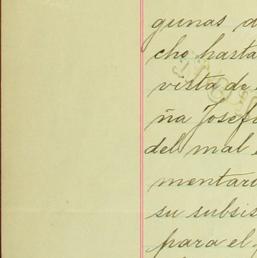 gunas a
cho hasta
vista de
ña Josef
del mal
mentari
su subsis
para el